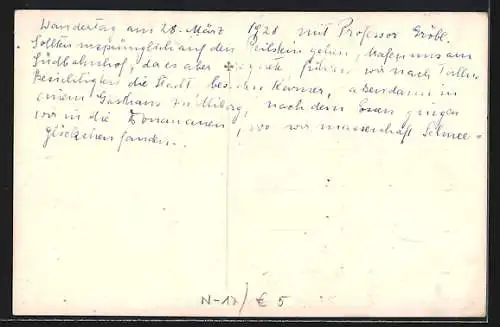 Wandertag am 28. März 1928 mit Professor Gröbl.
Sollten ursprünglich auf den Peilstein gehen, trafen uns am
Südbahnhof, da es aber regnete fuhren wir nach Tulln.
Besichtigten die Stadt bes. den Karner, assen dann in
einem Gasthaus zu Mittag, nach dem Essen gingen
wir in die Donauauen, wo wir massenhaft Schnee-
glöckchen fanden.
N-17/ € 5